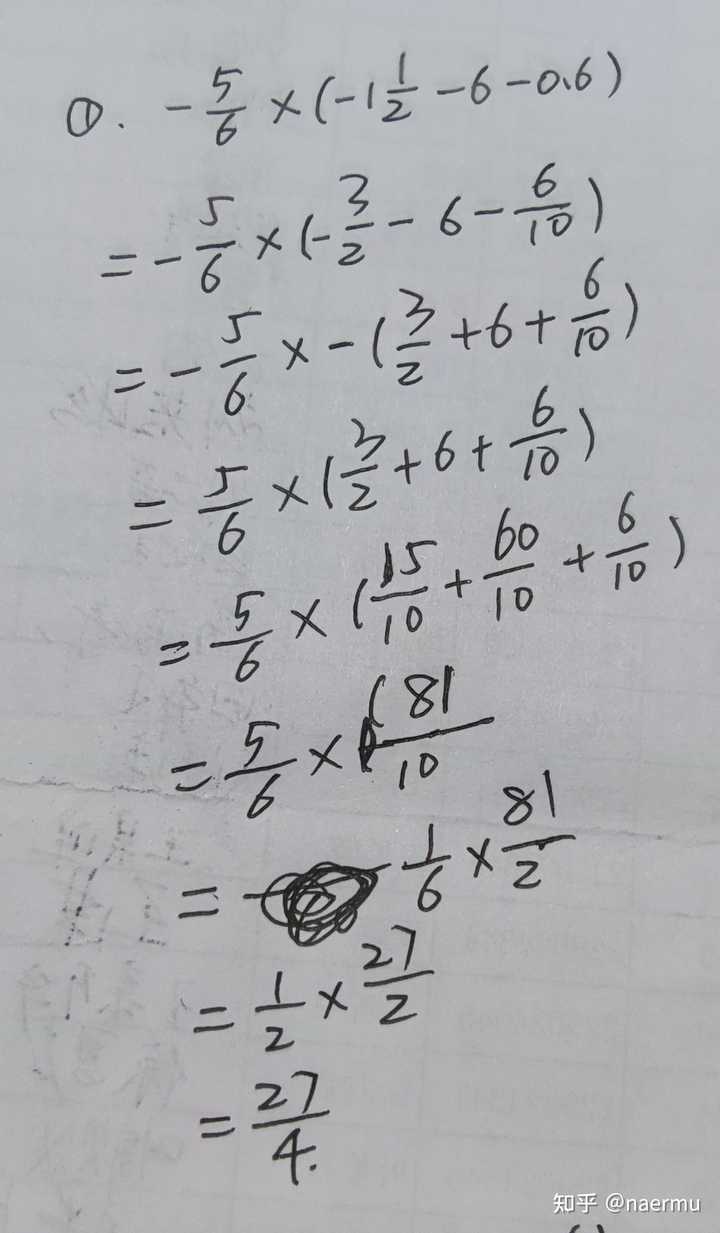 ①. -5/6 × (-1 1/2 - 6 - 0.6)
= -5/6 × (-3/2 - 6 - 6/10)
= -5/6 × -(3/2 + 6 + 6/10)
= 5/6 × (3/2 + 6 + 6/10)
= 5/6 × (15/10 + 60/10 + 6/10)
= 5/6 × (81/10
= 1/6 × 81/2
= 1/2 × 27/2
= 27/4.
知乎 @naermu